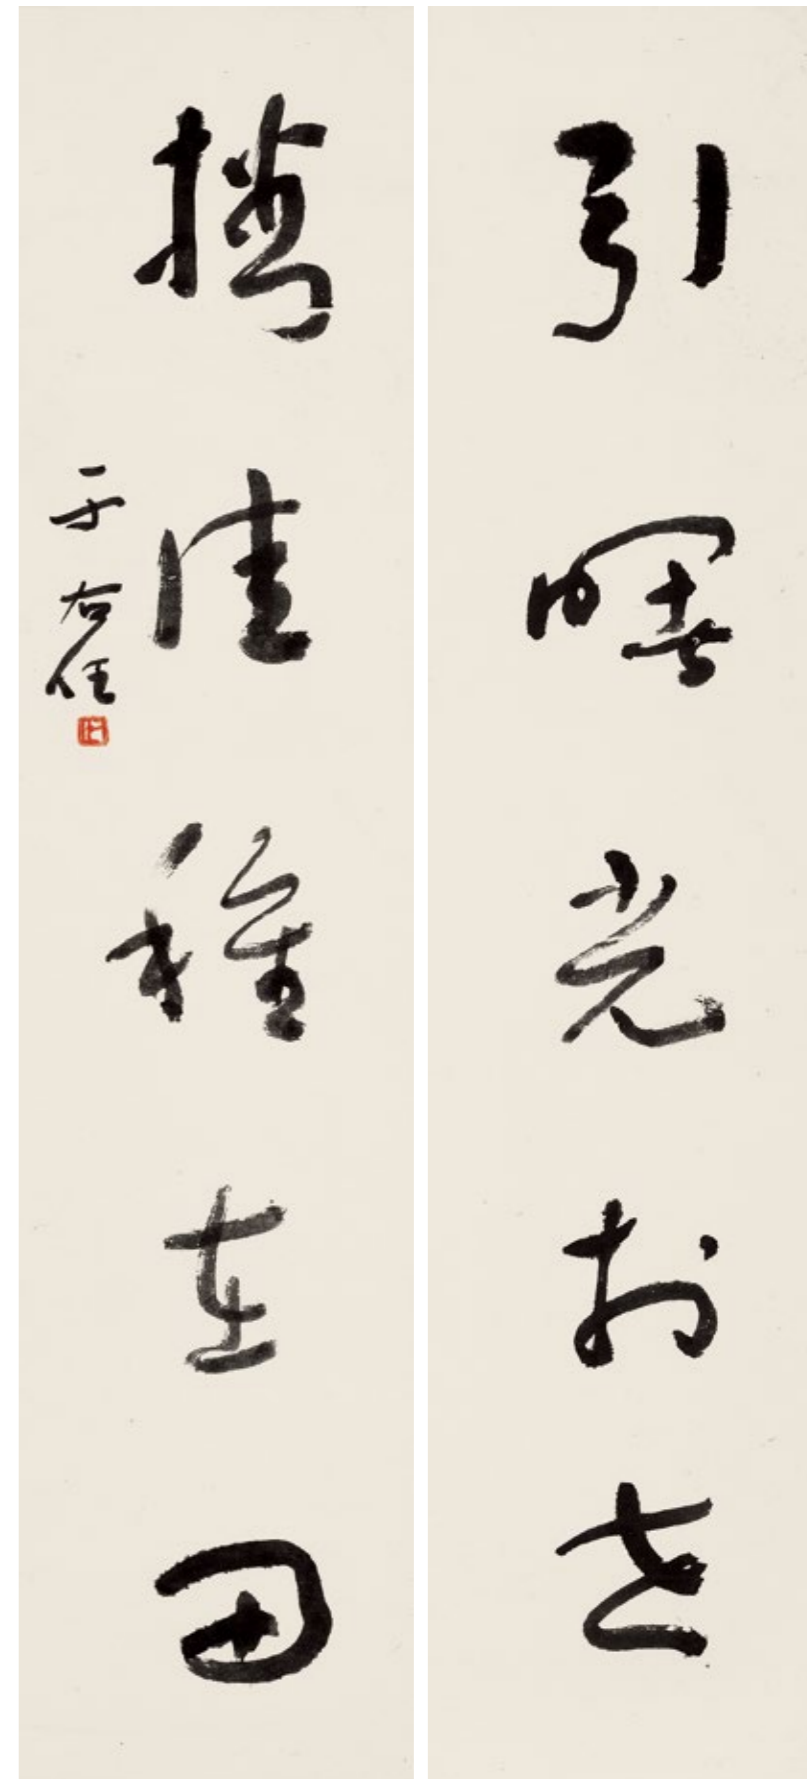 引曙光於世
播佳種在田
于右任